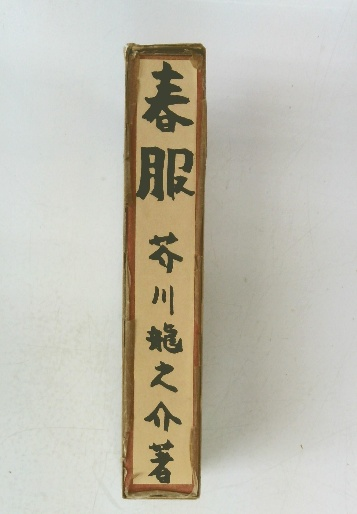 春服 芥川龍之介著